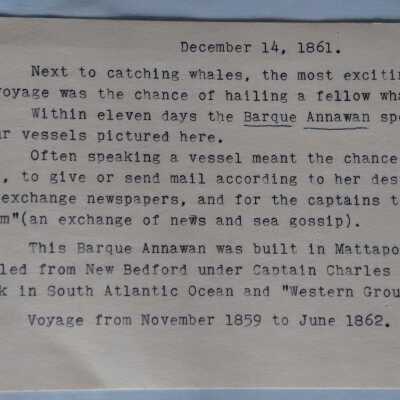 December 14, 1861.
Next to catching whales, the most exciti
voyage was the chance of hailing a fellow wha
Within eleven days the Barque Annawan spo
ur vessels pictured here.
Often speaking a vessel meant the chance
, to give or send mail according to her des
exchange newspapers, and for the captains t
m"(an exchange of news and sea gossip).
This Barque Annawan was built in Mattapo
led from New Bedford under Captain Charles
k in South Atlantic Ocean and "Western Grou
Voyage from November 1859 to June 1862.